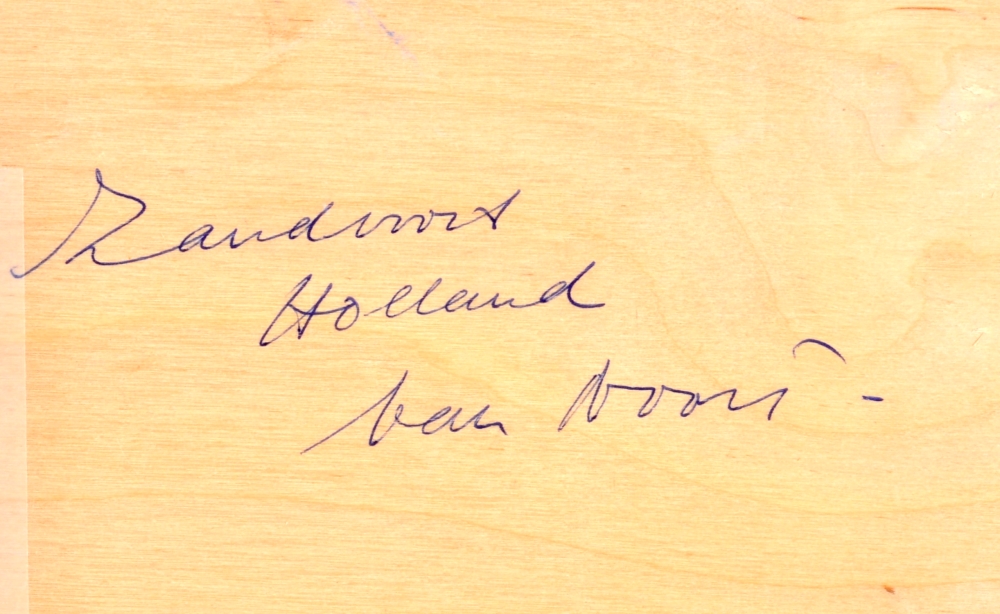 Zandvoort
Holland
van Noort -